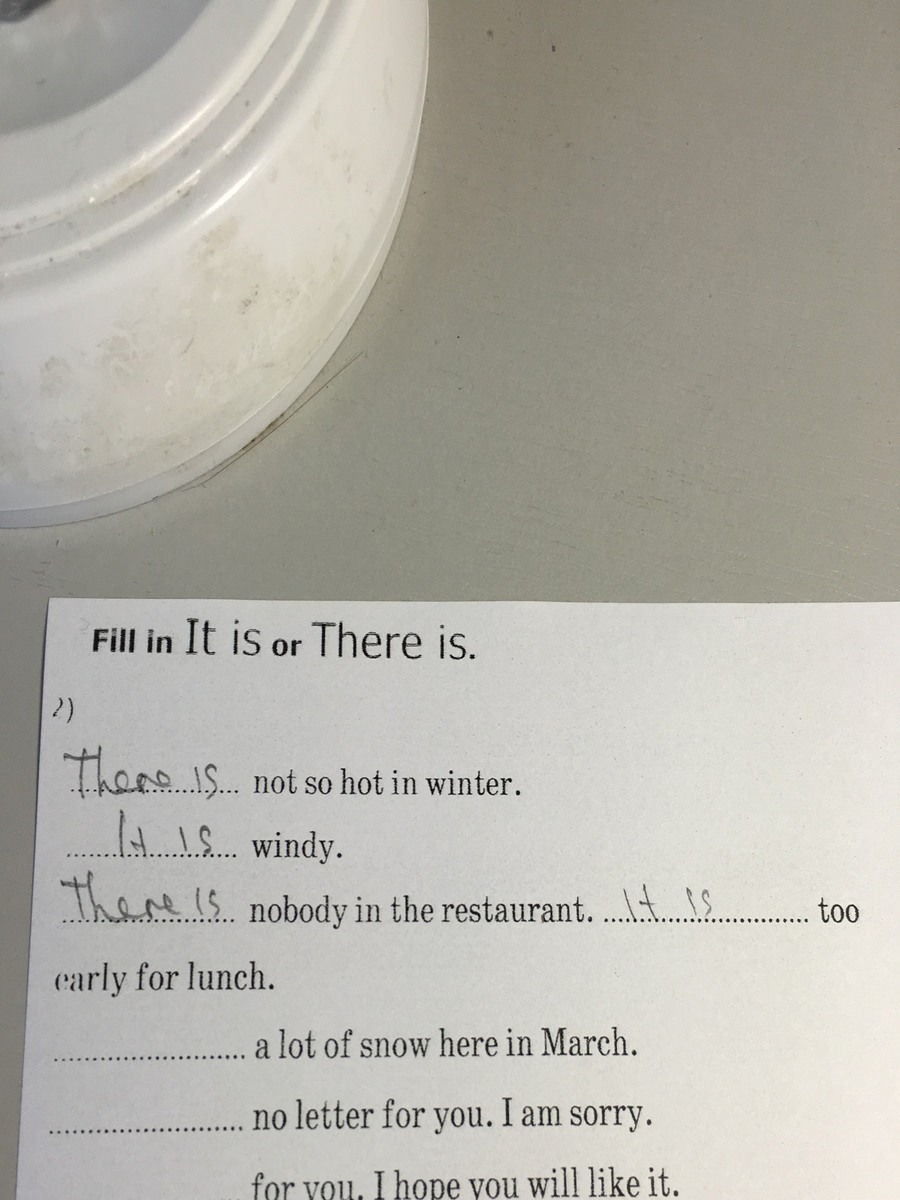 Fill in It is or There is.
2)
There is not so hot in winter.
It is windy.
There is nobody in the restaurant. It is too
early for lunch.
a lot of snow here in March.
no letter for you. I am sorry.
for you. I hope you will like it.